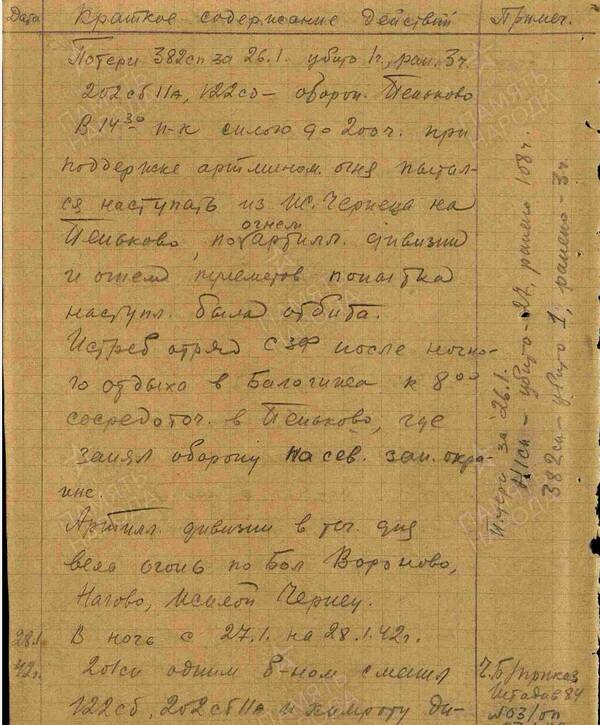 Дата Краткое содержание действий Примеч.
Потери 382сп за 26.1. убито 1ч., ран. 3ч.
202сб 11А, 122сб – оборон. Пеньково
В 14³⁰ п-к силою до 200ч. при
поддержке артмином. огня пытал-
ся наступать из Ис. Чернеца на
огнем
Пеньково, но артилл. дивизии
и огнем пулеметов попытка
наступл. была отбита.
Истреб отряд СЗФ после ночно-
го отдыха в к 8⁰⁰
сосредоточ. в Пеньково, где
занял оборону на сев. зап. окра-
ине.
Артилл. дивизии в теч. дня
вела огонь по Бол Вороново,
Нагово, Чернец.
Потери за 26.1.
41сп – убито – 27, ранено 108ч.
382сп – убито 1, ранено – 3ч.
28.1.
42г.
В ночь с 27.1. на 28.1.42г.
201сп одним б-ном сменил
122сб, 202сб 11А и химроту ди-
Ч.Б/приказ
Штадив 84
№03/оп
ПАМЯТЬ
НАРОДА